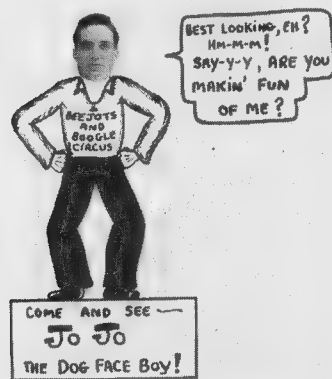 BEST LOOKING, EH?
HM-M-M!
SAY-Y-Y, ARE YOU
MAKIN' FUN
OF ME?
BEEJOTS
AND
BOOGLE
CIRCUS
COME AND SEE —
JO JO
THE DOG FACE BOY!